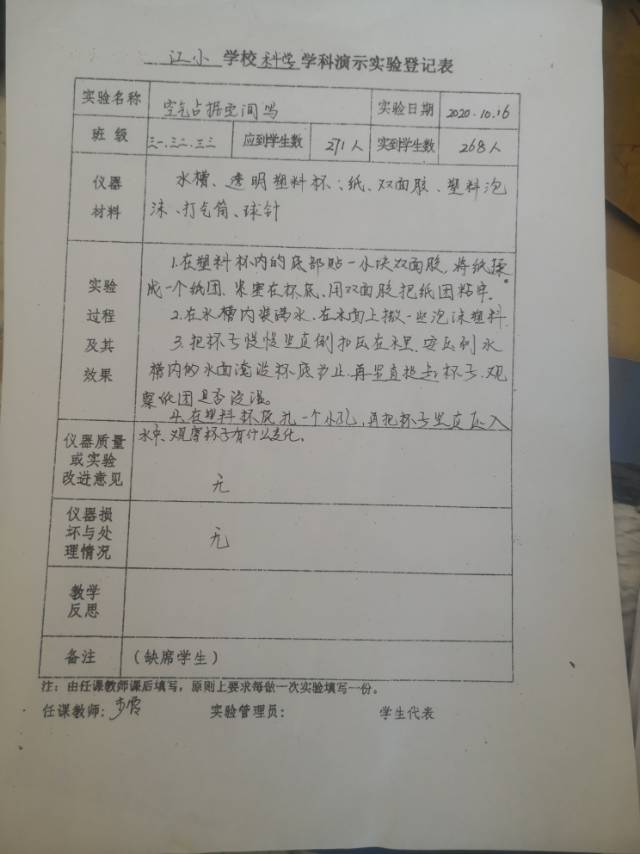 江小 学校 科学 学科演示实验登记表
实验名称 空气占据空间吗 实验日期 2020.10.16
班级 三一.三二.三三 应到学生数 271人 实到学生数 268人
仪器材料 水槽、透明塑料杯、纸、双面胶、塑料泡
沫、打气筒、球针
实验过程及其效果
1.在塑料杯内的底部贴一小块双面胶,将纸揉
成一个纸团,紧塞在杯底,用双面胶把纸团粘牢.
2.在水槽内装满水,在水面上撒一些泡沫塑料
3.把杯子慢慢竖直倒扣压在水里,要压到水
槽内的水面淹没杯底为止,再竖直提起杯子,观
察纸团是否浸湿。
4.在塑料杯底扎一个小孔,再把杯子竖直压入
水中,观察杯子有什么变化.
仪器质量或实验改进意见 无
仪器损坏与处理情况 无
教学反思
备注 (缺席学生)
注:由任课教师课后填写,原则上要求每做一次实验填写一份。
任课教师: 实验管理员: 学生代表